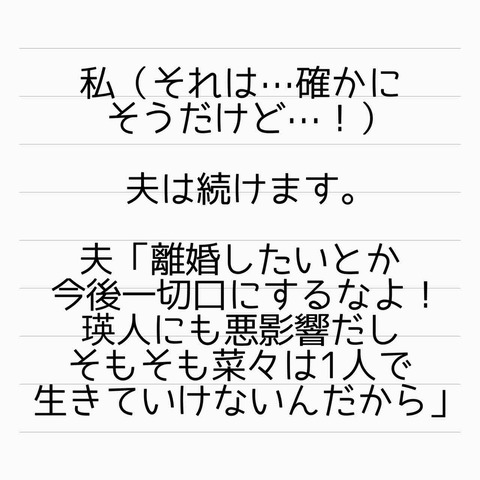 私（それは…確かに
そうだけど…！）
夫は続けます。
夫「離婚したいとか
今後一切口にするなよ！
瑛人にも悪影響だし
そもそも菜々は1人で
生きていけないんだから」